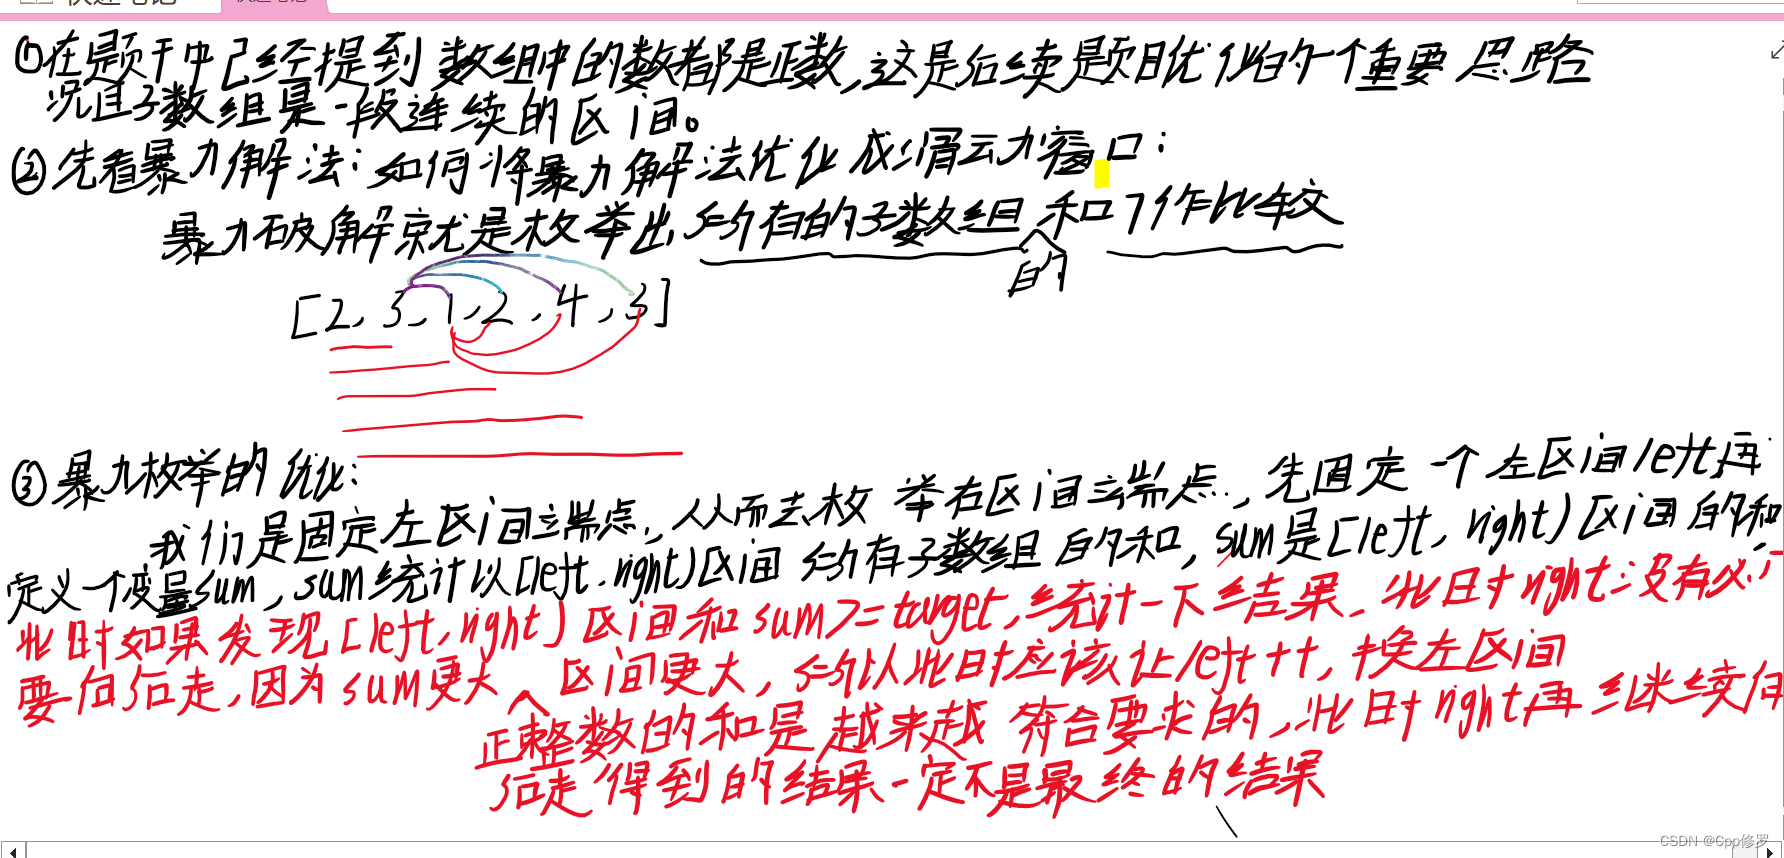 ①在题干中已经提到数组中的数都是正数,这是后续题目优化的一个重要思路
况且子数组是一段连续的区间。
②先看暴力解法:如何将暴力解法优化成滑动窗口:
暴力破解就是枚举出所有的子数组和7作比较
的
[2,3,1,2,4,3]
③暴力枚举的优化:
我们是固定左区间端点,从而去枚举右区间端点.,先固定一个左区间left,再
定义一个变量sum,sum统计以[left.right)区间所有子数组的和,sum是[left,right)区间的和,
此时如果发现[left,right)区间和sum>=target,统计一下结果.此时right没有必
要向后走,因为sum更大区间更大,所以此时应该让left++,换左区间
正整数的和是越来越符合要求的,此时right再继续向
后走得到的结果一定不是最终的结果
CSDN @Cpp修罗